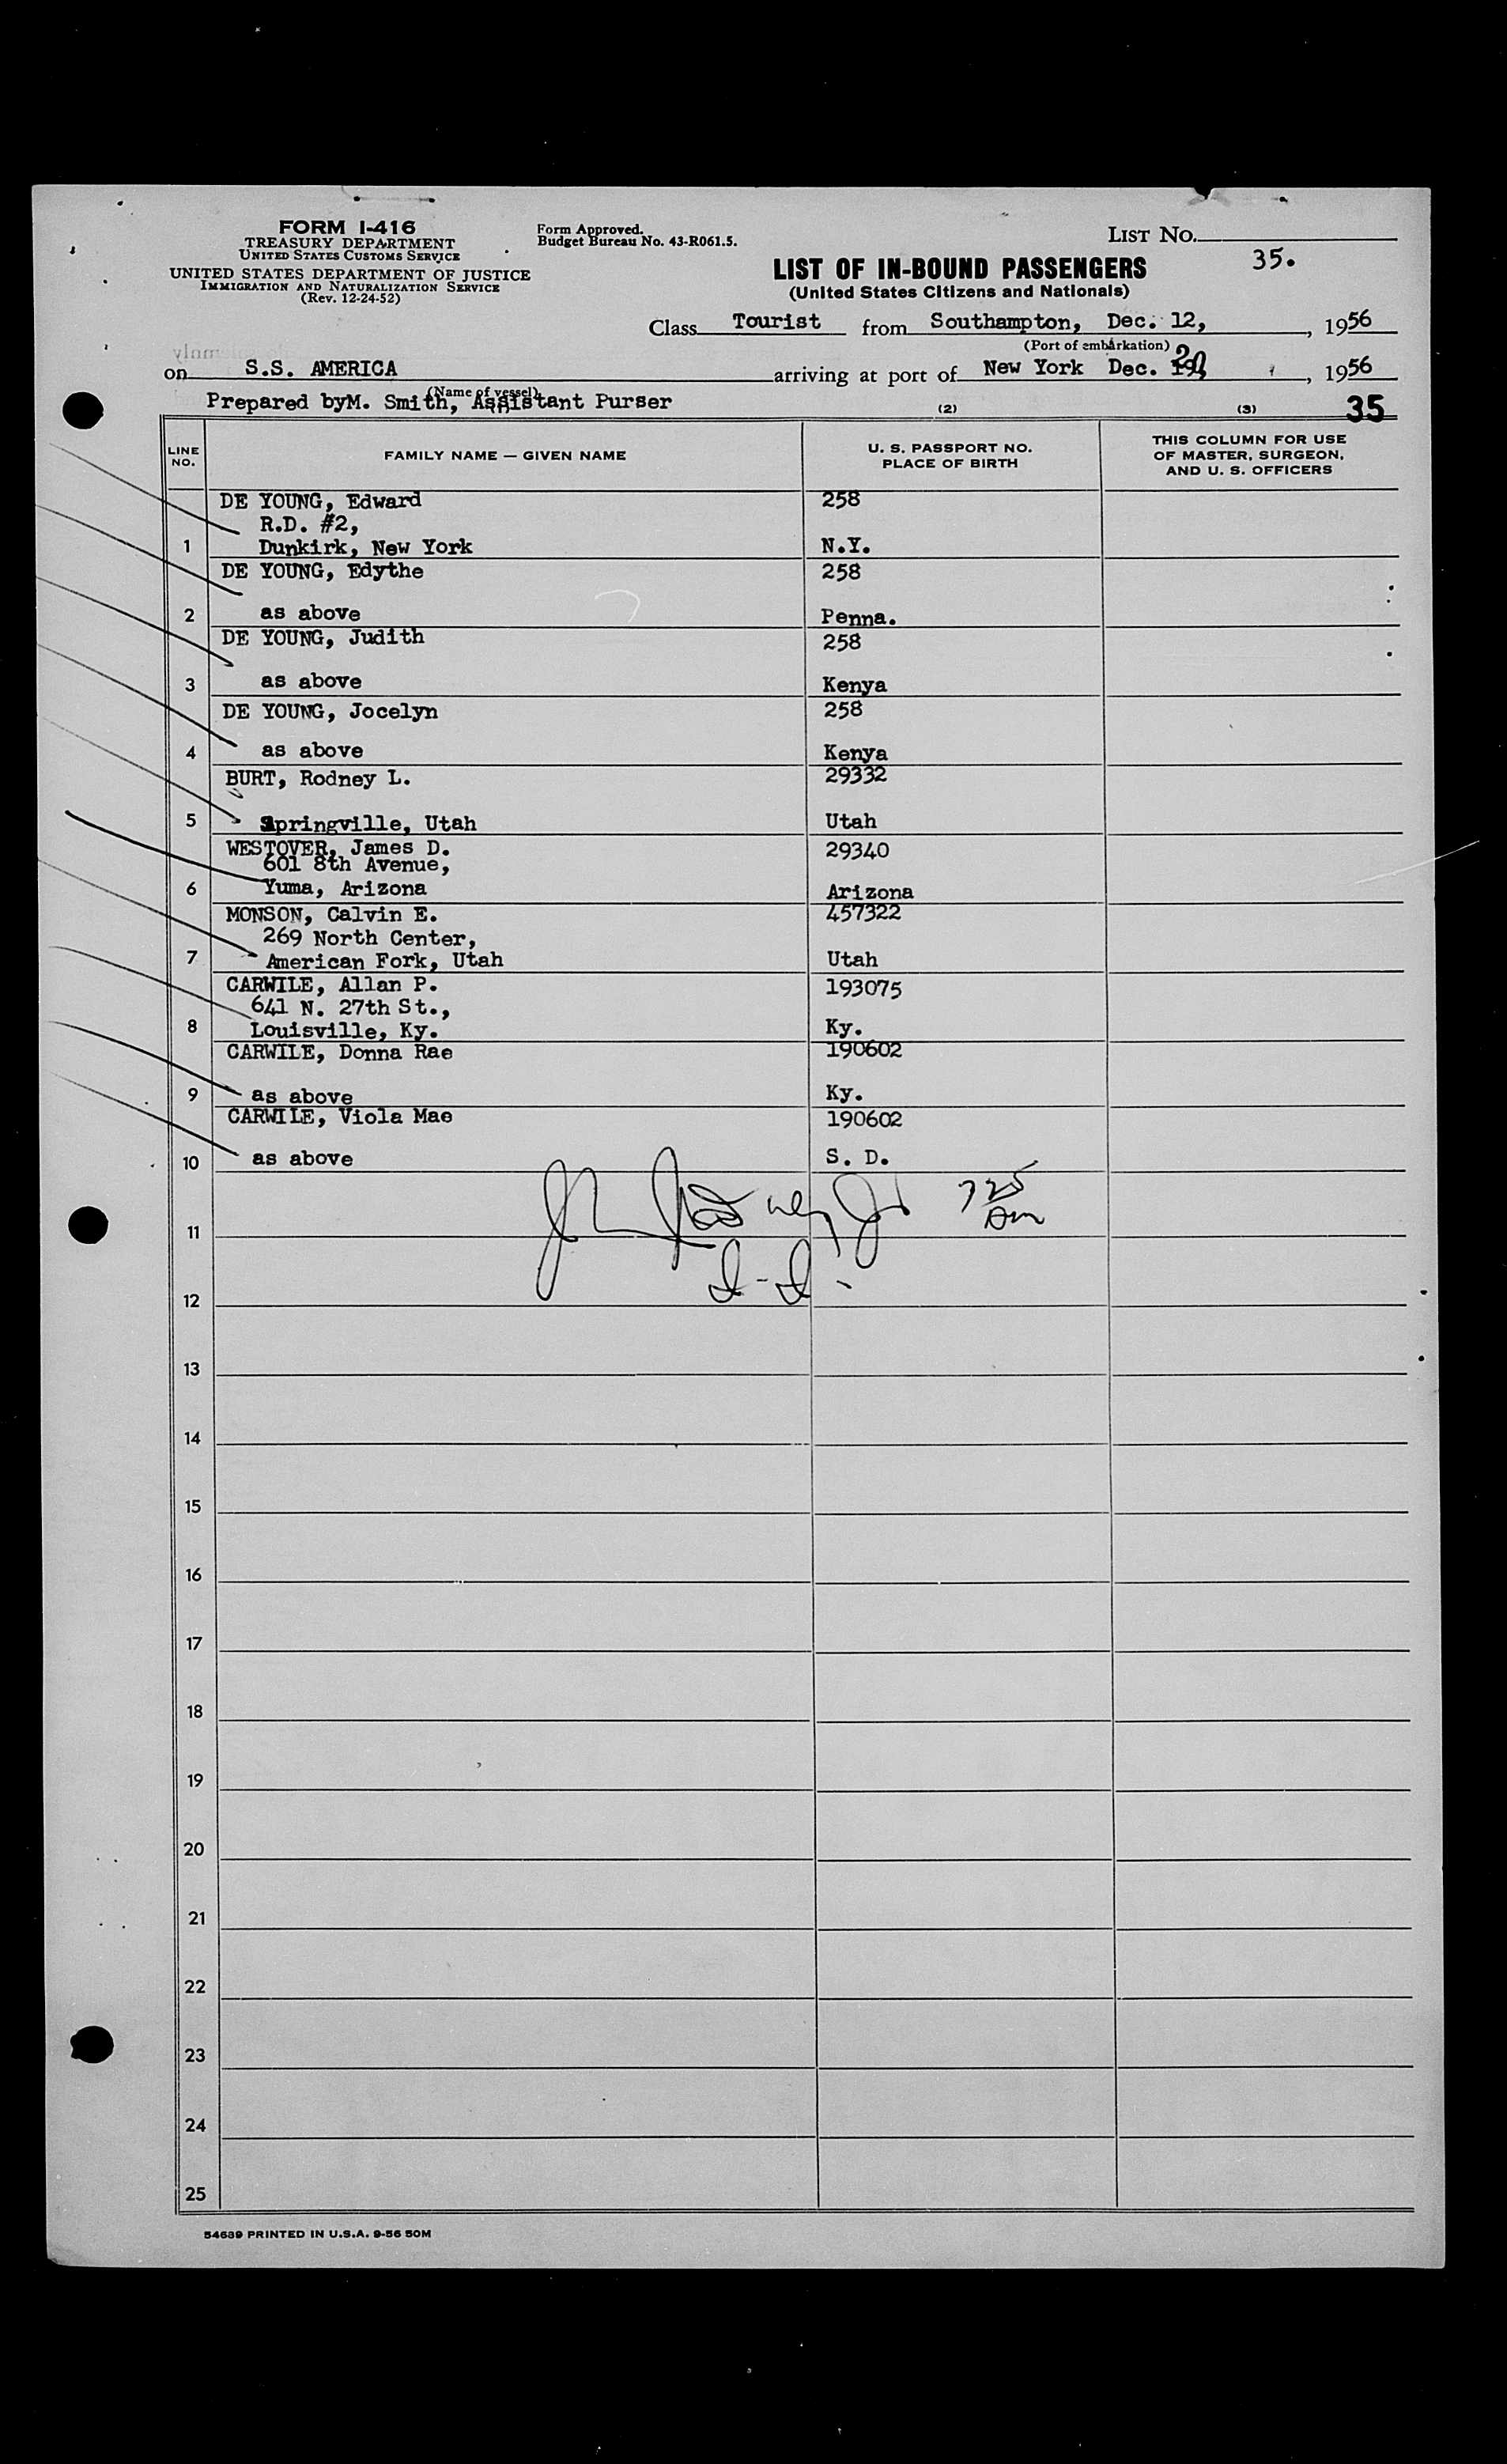 FORM I-416
TREASURY DEPARTMENT
UNITED STATES CUSTOMS SERVICE
UNITED STATES DEPARTMENT OF JUSTICE
IMMIGRATION AND NATURALIZATION SERVICE
(Rev. 12-24-52)
Form Approved.
Budget Bureau No. 43-R061.5.
LIST NO.
35.
LIST OF IN-BOUND PASSENGERS
(United States Citizens and Nationals)
Class Tourist from Southampton, Dec. 12, , 1956
(Port of embarkation)
on S.S. AMERICA arriving at port of New York Dec. 20 , 1956
(Name of vessel)
Prepared byM. Smith, Assistant Purser
(2) (3) 35
LINE NO. FAMILY NAME — GIVEN NAME U. S. PASSPORT NO. PLACE OF BIRTH THIS COLUMN FOR USE OF MASTER, SURGEON, AND U. S. OFFICERS
DE YOUNG, Edward 258
R.D. #2,
1 Dunkirk, New York N.Y.
DE YOUNG, Edythe 258
2 as above Penna.
DE YOUNG, Judith 258
3 as above Kenya
DE YOUNG, Jocelyn 258
4 as above Kenya
BURT, Rodney L. 29332
5 Springville, Utah Utah
WESTOVER, James D. 29340
601 8th Avenue,
6 Yuma, Arizona Arizona
MONSON, Calvin E. 457322
269 North Center,
7 American Fork, Utah Utah
CARWILE, Allan P. 193075
641 N. 27th St.,
8 Louisville, Ky. Ky.
CARWILE, Donna Rae 190602
9 as above Ky.
CARWILE, Viola Mae 190602
10 as above S. D.
725
Am
11
12
13
14
15
16
17
18
19
20
21
22
23
24
25
54639 PRINTED IN U.S.A. 9-56 50M